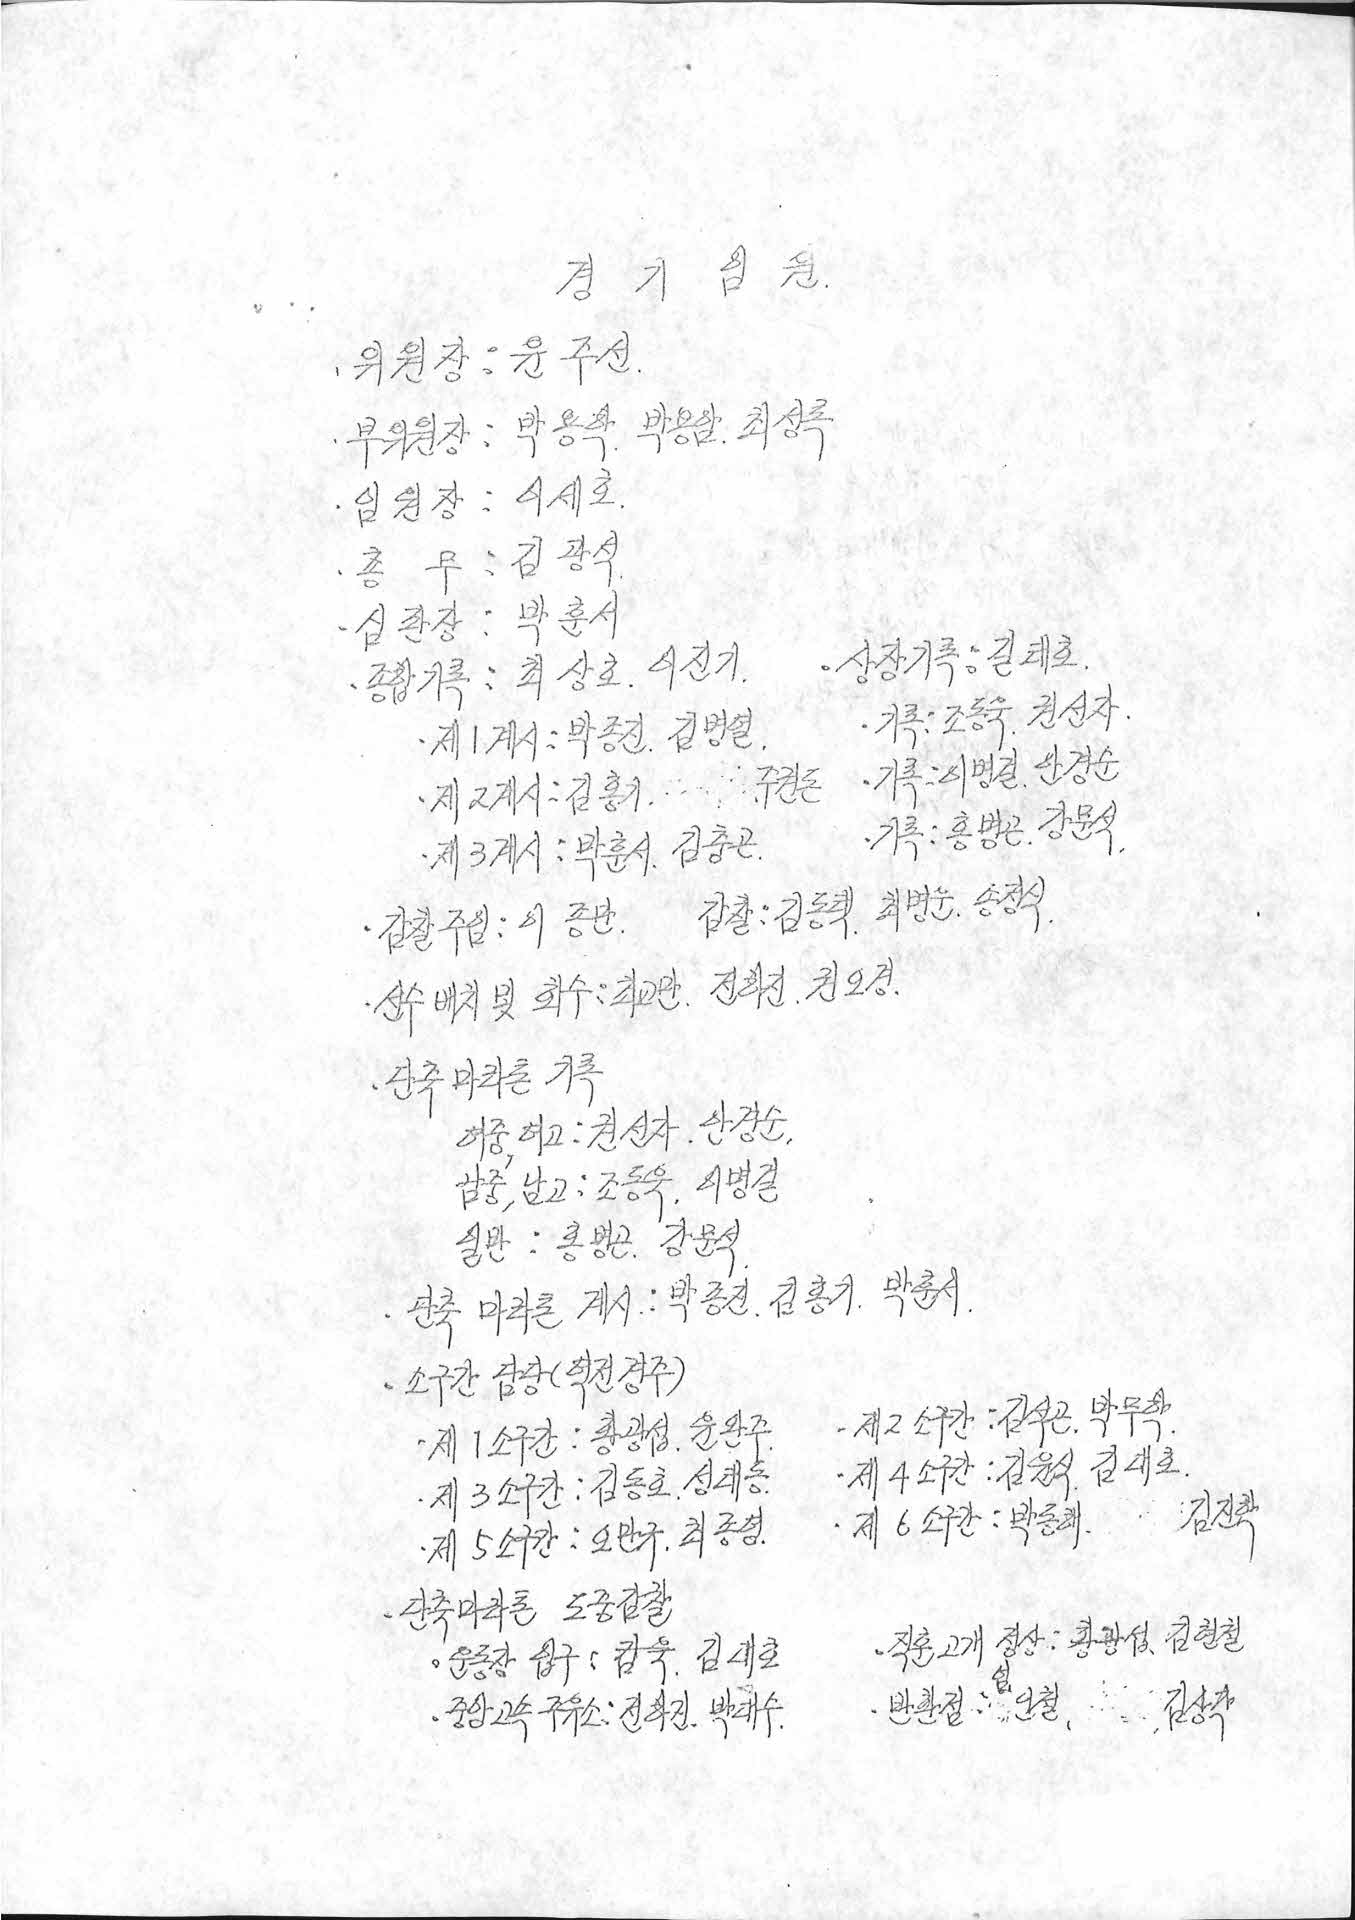 경 기 임 원.
· 위원장 : 윤주선.
· 부위원장 : 박용학. 박용암. 최성록
· 임원장 : 이세호.
· 총 무 : 김광석.
· 심판장 : 박훈서
· 종합기록 : 최상호. 이진기. · 상장기록 : 길태호.
· 제1계시 : 박종진. 김병열. · 기록 : 조동욱. 권선자.
· 제2계시 : 김홍기. 주권돈 · 기록 : 이병걸. 안경순
· 제3계시 : 박훈서. 김충곤. · 기록 : 홍병곤. 강문석.
· 감찰주임 : 이종만. 감찰 : 김동혁. 최병운. 송정석.
· 선수 배치 및 회수 : 최교만. 전화진. 권오경.
· 단축 마라톤 기록
여중, 여고 : 권선자. 안경순.
남중, 남고 : 조동욱. 이병걸
일반 : 홍병곤. 강문석.
· 단축 마라톤 계시 : 박종진. 김홍기. 박훈서.
· 소구간 담당(역전경주)
· 제1소구간 : 황광섭. 윤완주. · 제2소구간 : 김석곤. 박무학.
· 제3소구간 : 김동호. 성태동. · 제4소구간 : 김윤석. 김대호.
· 제5소구간 : 오만규. 최종섭. · 제6소구간 : 박종래. 김진확
· 단축마라톤 도중감찰
· 운동장 입구 : 감욱. 김대호 · 직훈고개 정상 : 황광섭. 김현철
· 중앙고속주유소 : 전화진. 박대수. · 반환점 : 임인철. 김상각